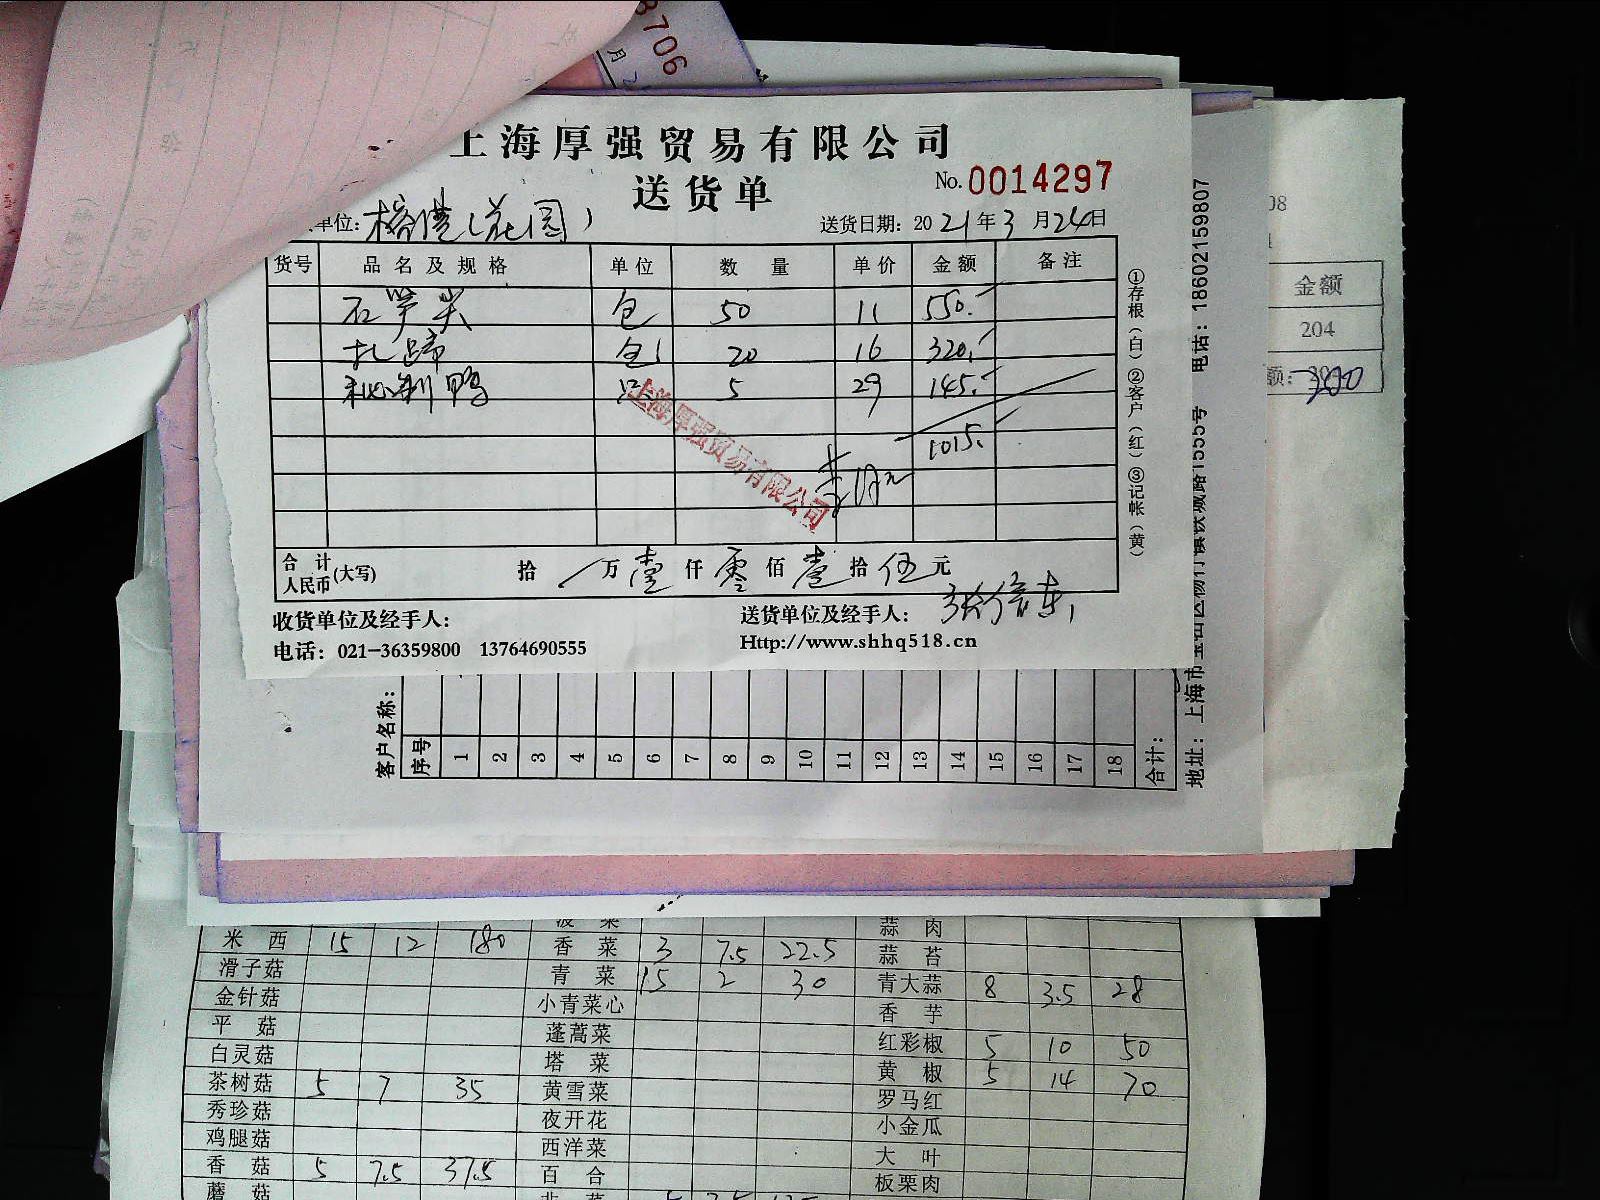 3706
月 2
上海厚强贸易有限公司
送货单
No. 0014297
单位: 榕港(花园)
送货日期: 2021年3月24日
货号 品名及规格 单位 数量 单价 金额 备注
石笋尖 包 50 11 550.
扎蹄 包 20 16 320.
秘制鸭 只 5 29 145.
1015.
上海厚强贸易有限公司
合计人民币(大写) 拾 / 万 壹 仟 零 佰 壹 拾 伍 元
收货单位及经手人:
送货单位及经手人:
电话: 021-36359800 13764690555
Http://www.shhq518.cn
①存根(白)②客户(红)③记帐(黄)
电话: 18602159807
地址: 上海市
1555号
08
金额
204
额:
客户名称:
序号 1 2 3 4 5 6 7 8 9 10 11 12 13 14 15 16 17 18 合计:
菠菜 蒜肉
米西 15 12 180 香菜 3 7.5 22.5 蒜苔
滑子菇 青菜 15 2 30 青大蒜 8 3.5 28
金针菇 小青菜心 香芋
平菇 蓬蒿菜 红彩椒 5 10 50
白灵菇 塔菜 黄椒 5 14 70
茶树菇 5 7 35 黄雪菜 罗马红
秀珍菇 夜开花 小金瓜
鸡腿菇 西洋菜 大叶
香菇 5 7.5 37.5 百合 板栗肉
蘑菇